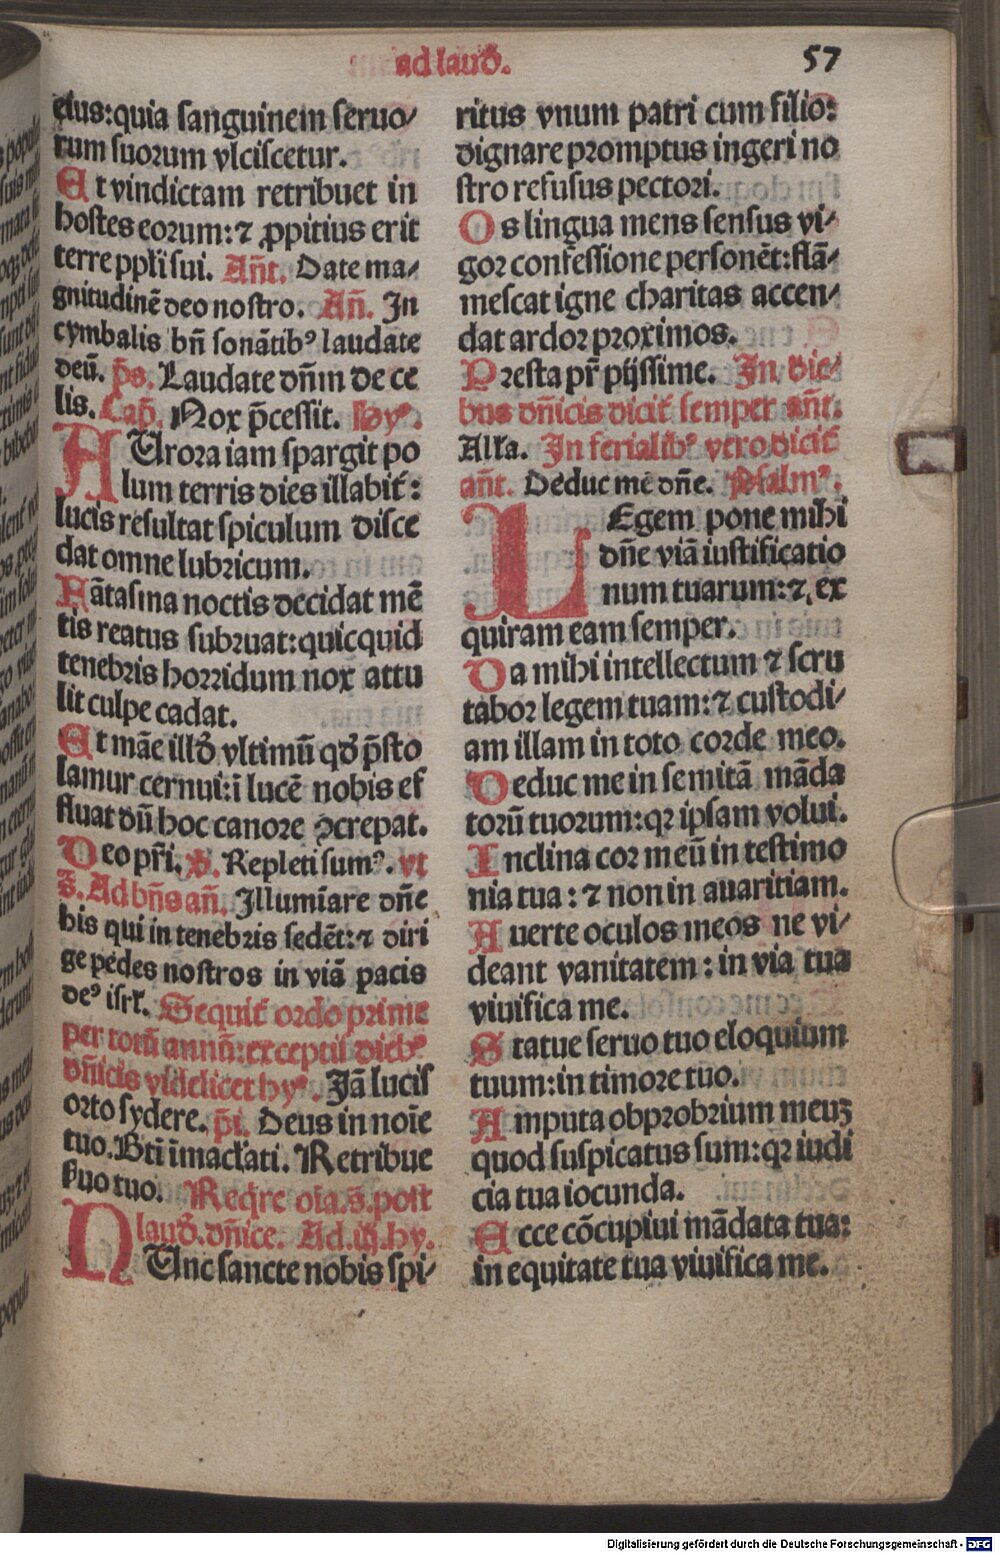 ad laud̄.
57
eius: quia sanguinem seruo/
rum suorum vlciscetur.
Et vindictam retribuet in
hostes eorum: ⁊ ꝓpitius erit
terre ppl̄i sui. Añt. Date ma/
gnitudinē deo nostro. Añ. In
cymbalis bñ sonātibꝰ laudate
deū. p̄s. Laudate dn̄m de ce
lis. Cap̄. Nox p̄cessit. Hyꝰ.
AUrora iam spargit po
lum terris dies illabit᷑:
lucis resultat spiculum disce
dat omne lubricum.
Fātasma noctis decidat mē
tis reatus subruat: quicquid
tenebris horridum nox attu
lit culpe cadat.
Et māe illd̄ vltimū qd̄ p̄sto
lamur cernui: i lucē nobis ef
fluat dū hoc canore ꝯcrepat.
Deo pr̄i. V̄. Repleti sumꝰ. vt
s̄. Ad bn̄s añ. Illumīare dn̄e
his qui in tenebris sedēt: ⁊ diri
ge pedes nostros in viā pacis
deꝰ isrl̄. Sequit᷑ ordo prime
per totū annū: exceptis diebꝰ
dn̄icis videlicet hyꝰ. Jā lucis
orto sydere. p̄i. Deus in noīe
tuo. Bt̄i īmacl̄ati. Retribue
suo tuo. Req̄re oīa s̄. post
laud̄. dn̄ice. Ad .iij. hy.
NUnc sancte nobis spi/
ritus vnum patri cum filio:
dignare promptus ingeri no
stro refusus pectori.
Os lingua mens sensus vi/
gor confessione personēt: flā/
mescat igne charitas accen/
dat ardor proximos.
Presta pr̄ pijssime. In die/
bus dn̄icis dicit᷑ semper añt.
Alla. In ferialibꝰ vero dicit᷑
añt. Deduc me dn̄e. Psalmꝰ.
LEgem pone mihi
dn̄e viā iustificatio
num tuarum: ⁊ ex
quiram eam semper.
Da mihi intellectum ⁊ scru
tabor legem tuam: ⁊ custodi/
am illam in toto corde meo.
Deduc me in semitā māda
torū tuorum: qꝛ ipsam volui.
Inclina cor meū in testimo
nia tua: ⁊ non in auaritiam.
Auerte oculos meos ne vi/
deant vanitatem: in via tua
viuifica me.
Statue seruo tuo eloquium
tuum: in timore tuo.
Amputa obprobrium meuꝫ
quod suspicatus sum: qꝛ iudi
cia tua iocunda.
Ecce cōcupiui mādata tua:
in equitate tua viuifica me.
Digitalisierung gefördert durch die Deutsche Forschungsgemeinschaft - DFG